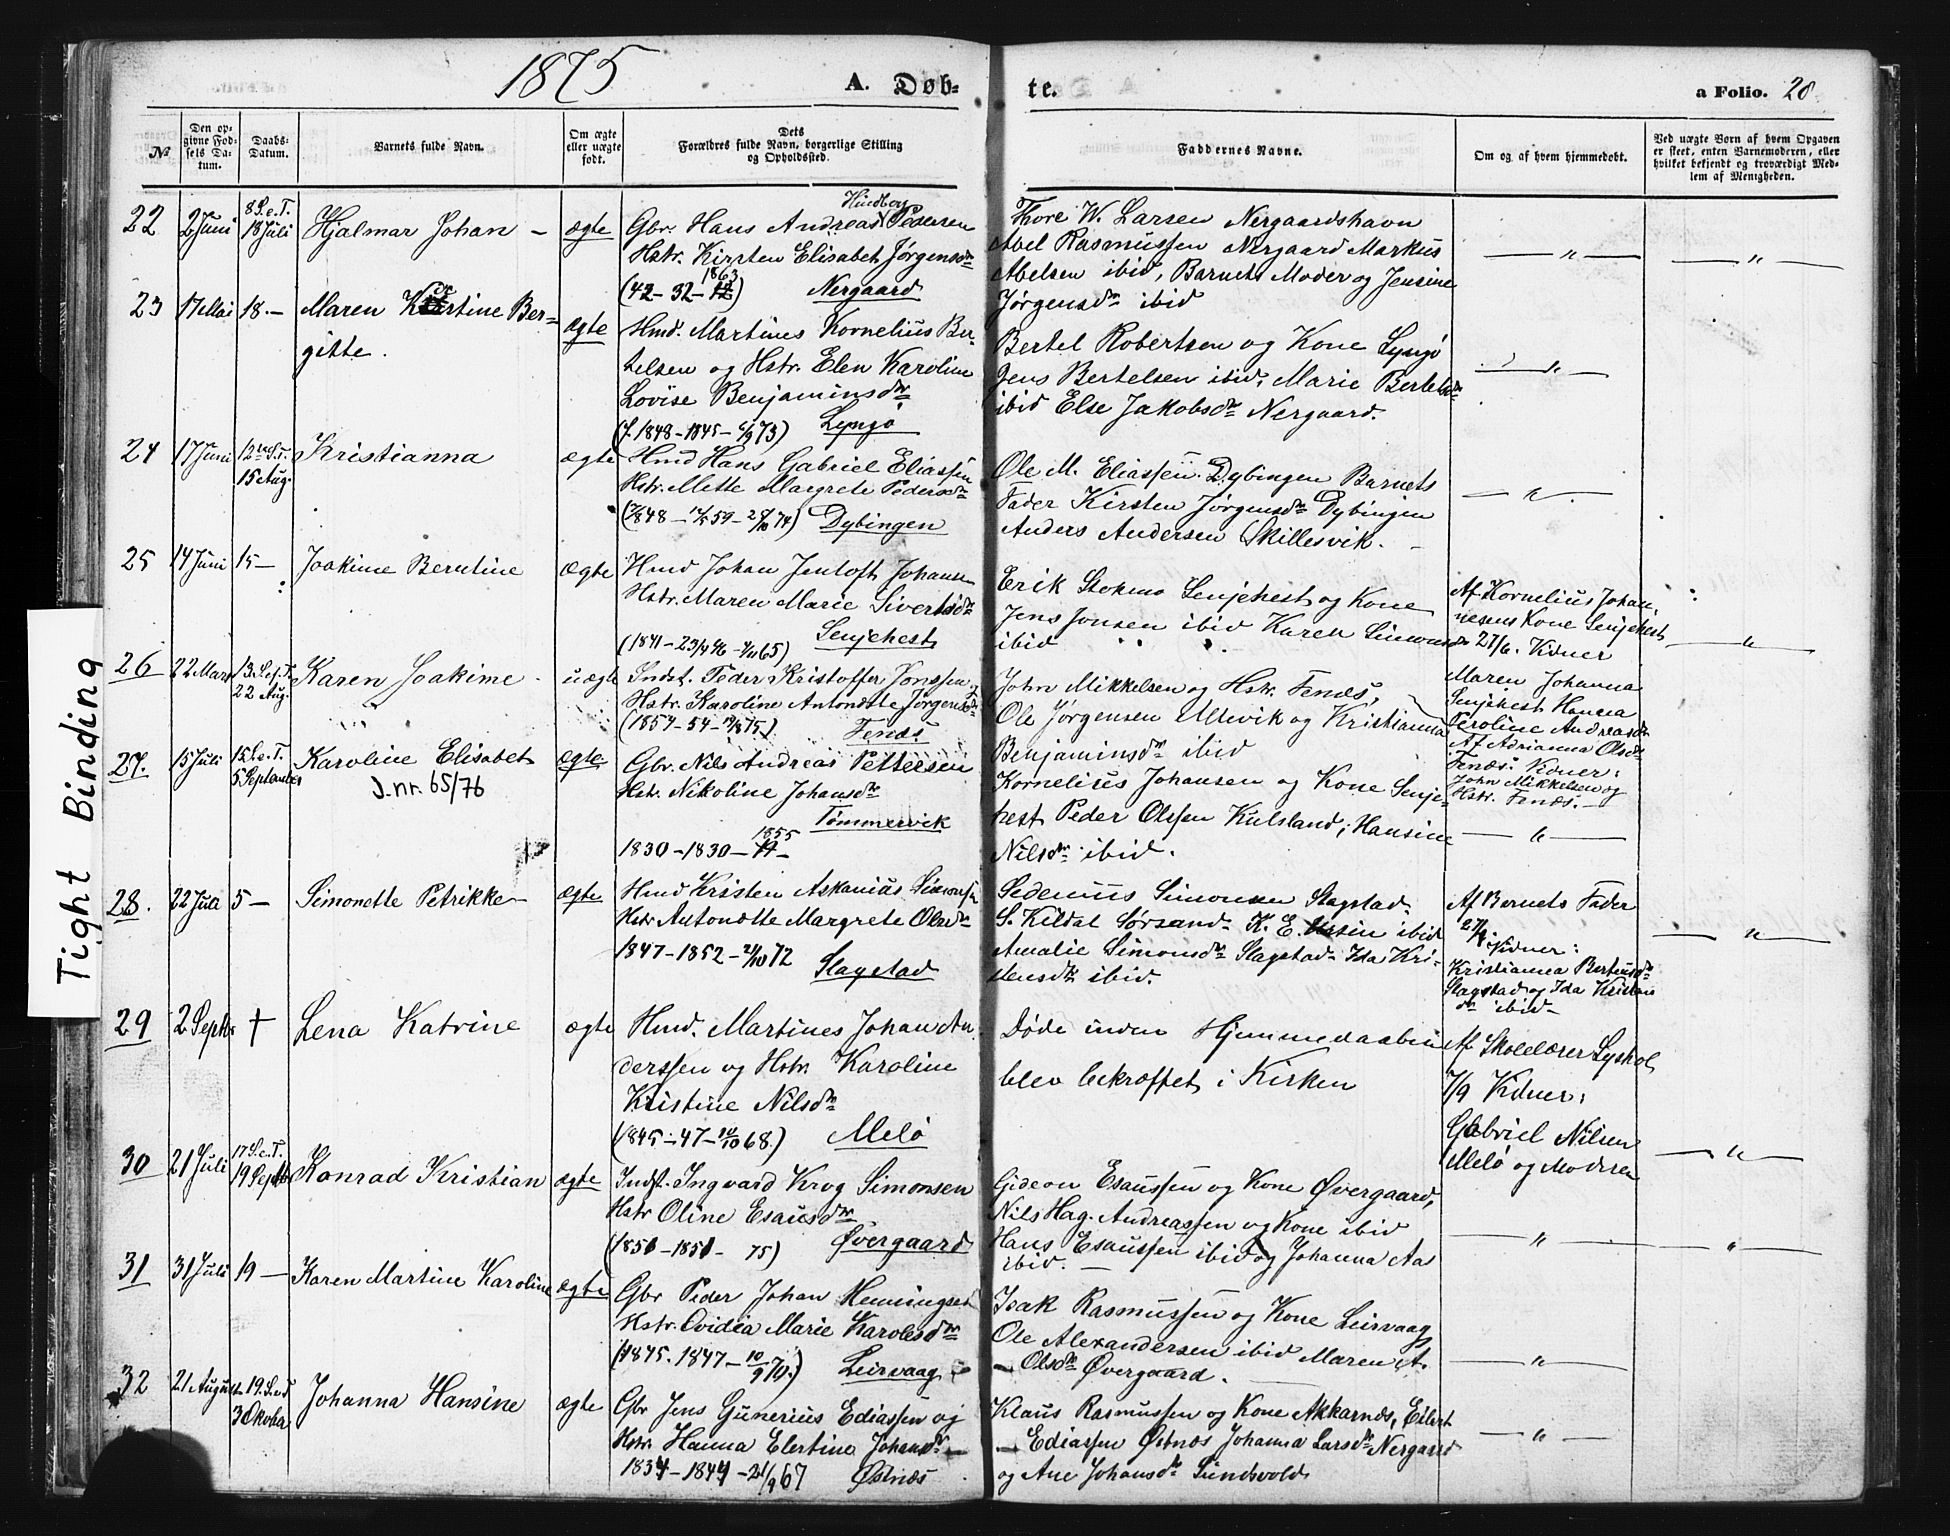 1875
A. Døb-
te.
a Folio. 28
№
Den op-
givne Fød-
sels Da-
tum.
Daabs-
Datum.
Barnets fulde Navn.
Om ægte
eller uægte
født.
Dets
Forældres fulde Navn, borgerlige Stilling
og Opholdssted.
Faddernes Navne.
Om og af hvem hjemmedøbt.
Ved uægte Børn af hvem Opgaven
er skeet, enten Barnemoderen, eller
hvilket bekjendt og troværdigt Med-
lem af Menigheden.
22
2 Juni
8 S.e.T.
18 Juli
Hjalmar Johan -
ægte
Hindbog
Gbr. Hans Andreas Pedersen
Hstr. Kirsten Elisabet Jørgensdr
1863
(42-32-)
Nergaard
Thore W. Larsen Nergaardshavn
Abel Rasmussen Nergaard Markus
Abelsen ibid, Barnets Moder og Jensine
Jørgensdr ibid
— " —
— " —
23
17 Mai
18. -
Maren Kirstine Ber-
gitte.
ægte
Hmd. Martines Kornelius Ber-
telsen og Hstr. Elen Karoline
Lovise Benjaminsdr
(f. 1848-1845-6/973)
Lyngø
Bertel Robertsen og Kone Lyngø
Jens Bertelsen ibid, Marie Bertelsdr
ibid Else Jakobsdr Nergaard.
— " —
24
17 Juni
12te S.T.
15 Aug.
Kristianna
ægte
Hmd Hans Gabriel Eliassen
Hstr. Mette Margrete Pedersdr
Dybingen
Ole M. Eliassen Dybingen Barnets
Fader Kirsten Jørgensdr Dybingen
Anders Andersen Skillesvik. -
— " —
25
14 Juni
15 -
Joakime Berntine
ægte
Hmd Johan Jentoft Johansen
Hstr. Maren Marie Sivertsdr
Senjehest
(1841-23/446-65)
Erik Stokmo Senjehest og Kone
Jens Jonsen ibid Karen Simonsdr
ibid
Af Kornelius Johan-
nesens Kone Senjehest
27/6. Vidner
Maren Johanna
Senjehest Hansa
Peroline Andreasdr
— " —
26
22 Mars
13 S.ef.T.
22 Aug.
Karen Joakime -
uægte
Indst. Peder Kristoffer Jonssen
Hstr. Karoline Antonette Jørgensdr
Fenæs
John Mikkelsen og Hstr. Fenæs,
Ole Jørgensen Ulevik og Kristianna
Benjaminsdr ibid
Af Adrianna Olsdr
Fenæs. Vidner:
John Mikkelsen og
Hstr. Fenæs. -
27.
15 Juli
15 S.e.T.
5 September
Karoline Elisabet
J.nr. 65/76
ægte
Gbr. Nils Andreas Pettersen
Hstr. Nikoline Johansdr
Tømmervik
1855
1830-1830-
Kornelius Johansen og Kone Senje-
hest Peder Olssen Kulsland, Hansine
Nilsdr ibid.
— " —
28.
22 Juli
5 -
Simonette Petrikke
ægte
Hmd Kristen Askanius Simonsen
Hstr Antonette Margrete Olsdr
1847-1852-21/1072
Slagstad
Sedenius Simonsen Slagstad.
S. Kildal Sørsand. K. E. ibid
Amalie Simonsdr Slagstad Ida Kri-
stensdr ibid.
Af Barnets Fader
Vidner:
Kristianna Bertensdr
Slagstad og Ida Kristens
dr ibid -
— " —
29
2 Septbr
†
Lena Katrine
ægte
Hmd. Martines Johan An-
derssen og Hstr. Karoline
Kristine Nilsdr
(1845-47-10/1068.)
Melø
Døde inden Hjemmedaaben
blev bekræftet i Kirken
Af Skolelærer Lyshol
7/9 Vidner:
Gabriel Nilsen
Melø og Moderen
— " —
30
21 Juli
17 S.e.T.
19 Septbr
Konrad Kristian
ægte
Indst. Ingvard Krog Simonsen
Hstr Oline Esausdr
(1850-1851- 75)
Øvergaard
Gideon Esaussen og Kone Øvergaard,
Nils Hag. Andreassen og Kone ibid
Hans Esaussen ibid og Johanna Aas
ibid. -
— " —
— " —
31
31 Juli
19 -
Karen Martine Karoline
ægte
Gbr Peder Johan Henningsen
Hstr. Ovidia Marie Karolesdr
(1845. 1847-10/970.)
Leirvaag
Isak Rasmussen og Kone Leirvaag
Ole Alexandersen ibid Maren A.
- Olsdr Øvergaard. -
— " —
32
21 August
19. S.e.T.
3 Oktober
Johanna Hansine
ægte
Gbr Jens Gunerius Ediassen og
Hstr Hanna Elertine Johansdr
1834-1844-21/967
Østnæs
Klaus Rasmussen og Kone Akkarnæs, Eilert
- Ediassen Østnæs Johanna Larsdr Nergaard
og Ane Johansdr Sundsvold
— " —
Tight Binding